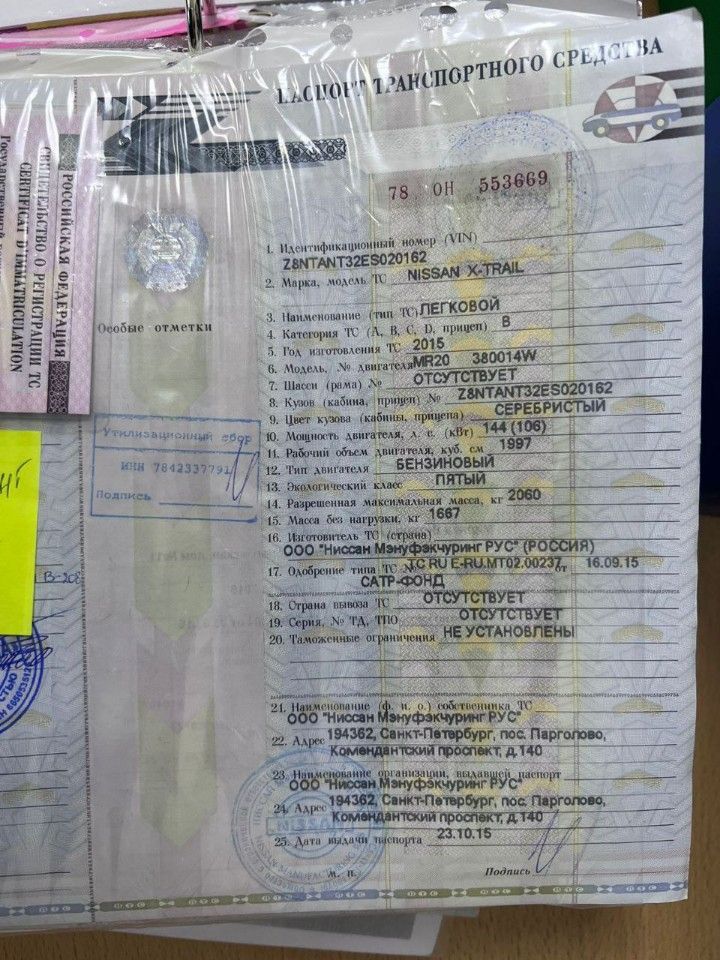 ПАСПОРТ ТРАНСПОРТНОГО СРЕДСТВА
78 ОН 553669
РОССИЙСКАЯ ФЕДЕРАЦИЯ
СВИДЕТЕЛЬСТВО О РЕГИСТРАЦИИ ТС
CERTIFICAT D'IMMATRICULATION
Особые отметки
Утилизационный сбор
ИНН 7842337791
Подпись
1. Идентификационный номер (VIN)
Z8NTANT32ES020162
2. Марка, модель ТС NISSAN X-TRAIL
3. Наименование (тип ТС) ЛЕГКОВОЙ
4. Категория ТС (А, В, С, D, прицеп) В
5. Год изготовления ТС 2015
6. Модель, № двигателя MR20 380014W
7. Шасси (рама) № ОТСУТСТВУЕТ
8. Кузов (кабина, прицеп) № Z8NTANT32ES020162
9. Цвет кузова (кабины, прицепа) СЕРЕБРИСТЫЙ
10. Мощность двигателя, л. с. (кВт) 144 (106)
11. Рабочий объем двигателя, куб. см 1997
12. Тип двигателя БЕНЗИНОВЫЙ
13. Экологический класс ПЯТЫЙ
14. Разрешенная максимальная масса, кг 2060
15. Масса без нагрузки, кг 1667
16. Изготовитель ТС (страна)
ООО "Ниссан Мэнуфэкчуринг РУС" (РОССИЯ)
17. Одобрение типа ТС № ТС RU E-RU.MT02.00237 от 16.09.15
САТР-ФОНД
18. Страна вывоза ТС ОТСУТСТВУЕТ
19. Серия, № ТД, ТПО ОТСУТСТВУЕТ
20. Таможенные ограничения НЕ УСТАНОВЛЕНЫ
21. Наименование (ф. и. о.) собственника ТС
ООО "Ниссан Мэнуфэкчуринг РУС"
22. Адрес 194362, Санкт-Петербург, пос. Парголово,
Комендантский проспект, д.140
23. Наименование организации, выдавшей паспорт
ООО "Ниссан Мэнуфэкчуринг РУС"
24. Адрес 194362, Санкт-Петербург, пос. Парголово,
Комендантский проспект, д.140
25. Дата выдачи паспорта 23.10.15
М. П. Подпись
NISSAN